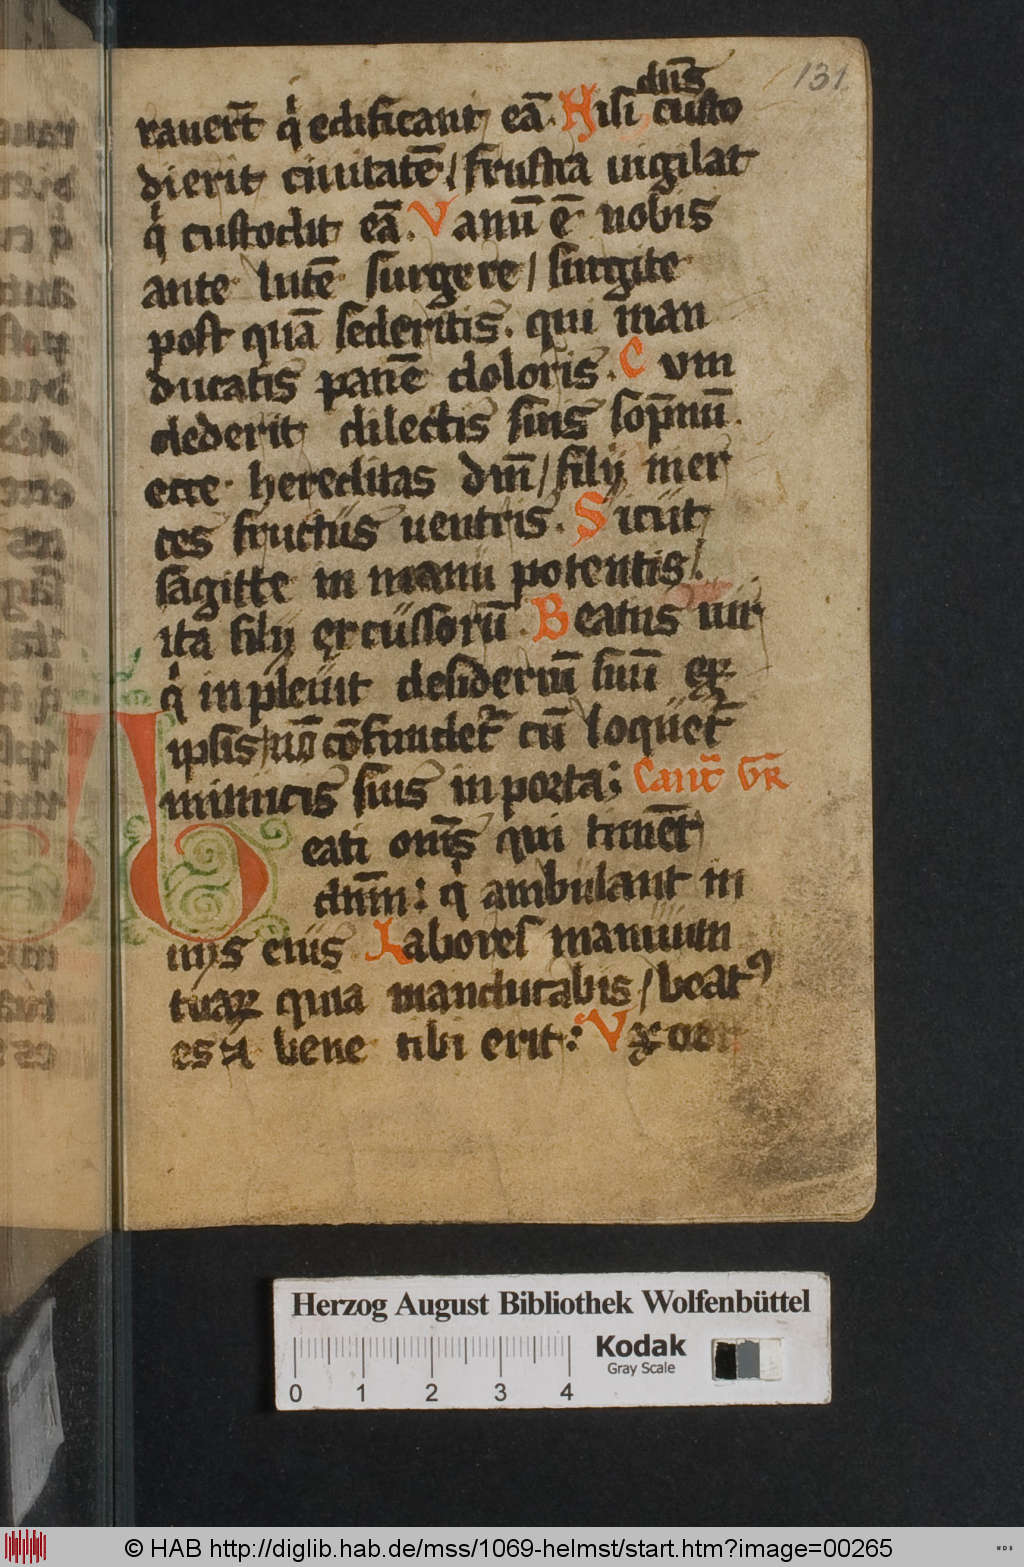 131
dn̄s
rauer̄t q̇ edificant eā. Nisi custo
dierit ciuitatē / frustra uigilat
q̇ custodit eā. Vanū ē uobis
ante lucē surgere / surgite
post quā sederitis. qui man
ducatis panē doloris. Cum
dederit dilectis suis sop̄nū.
ecce hereditas dn̄i / filij mer
ces fructus uentris. Sicut
sagitte in manu potentis /
ita filij excussorū. Beatus uir
q̇ inpleuit desideriū suū ex
ipsis / nō cōfundet᷑ cū loquet᷑
inimicis suis in porta; Cant᷑ Gr̄
Beati om̄s qui timēt
dn̄m: q̇ ambulant in
uijs eius Labores manuum
tuaꝝ quia manducabis / beatꝰ
es ⁊ bene tibi erit: Vxor
Herzog August Bibliothek Wolfenbüttel
Kodak
Gray Scale
0 1 2 3 4
© HAB http://diglib.hab.de/mss/1069-helmst/start.htm?image=00265